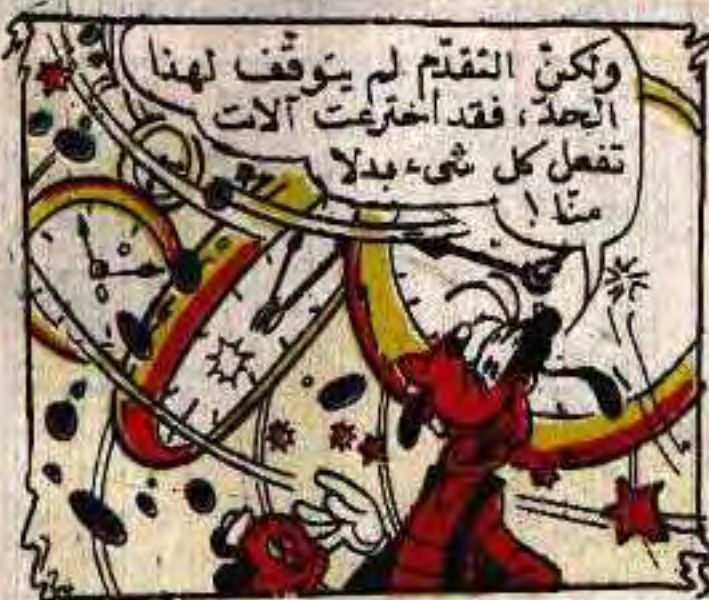 ولكنّ التقدّم لم يتوقّف لهذا
الحدّ، فقد اخترعت آلات
تفعل كل شيء بدلا
منّا !